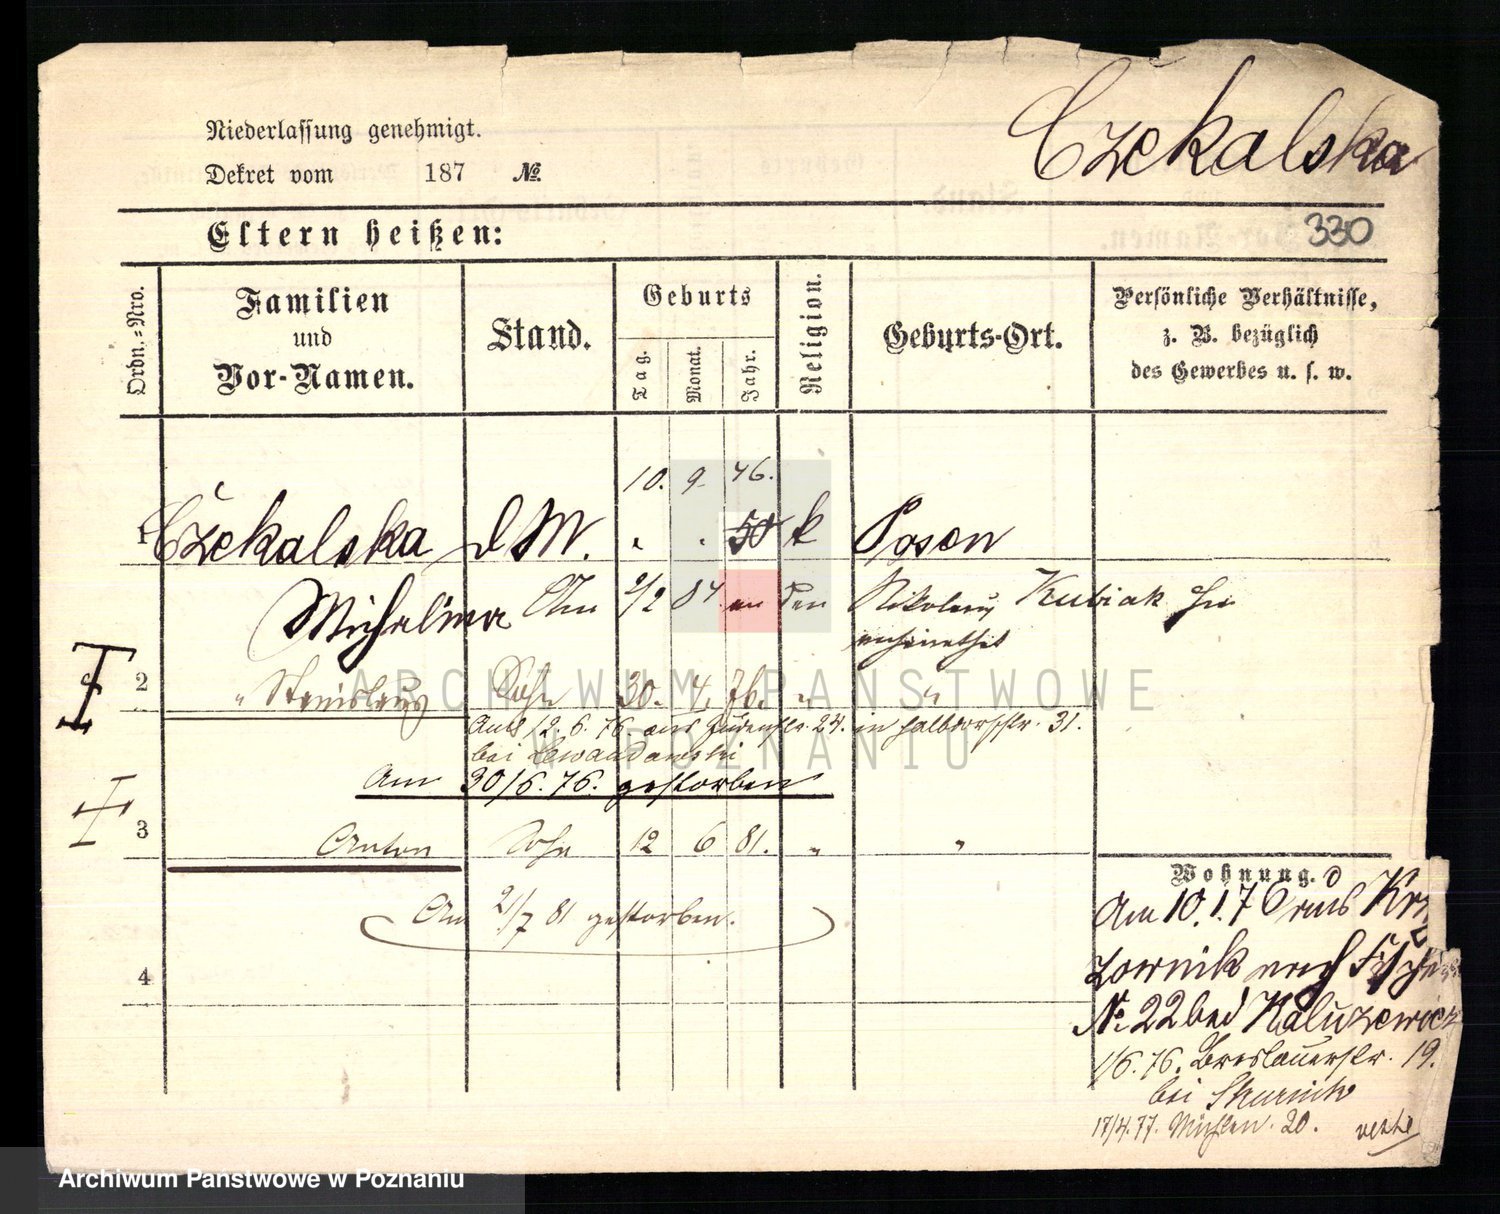 Czekalska
Niederlassung genehmigt.
Dekret vom 187 №.
Eltern heißen:
330
Ordn.-Nro.
Familien
und
Vor-Namen.
Stand.
Geburts
Tag.
Monat.
Jahr.
Religion.
Geburts-Ort.
Persönliche Verhältnisse,
z. B. bezüglich
des Gewerbes u. s. w.
10. 9. 46.
1 Czekalska d M. " " 50 k Posen
Michalina Am 2/2 84 den Nikolaus Kubiak
2 " Stanislaus Sohn 30. 4. 76. " "
Am 12. 6. 76. aus Judenstr. 24. in Halbdorfstr. 31.
bei Lewandowski
Am 30/6. 76. gestorben
3 Anton Sohn 12 6 81. " "
Am 2/7 81 gestorben.
4
Wohnung.
Am 10.1.76 aus
nach
№ 22 bei Kaluzewicz
1/6. 76. Breslauerstr. 19.
bei
17/4. 77. Mühlen. 20.
ARCHIWUM PAŃSTWOWE
W POZNANIU
Archiwum Państwowe w Poznaniu